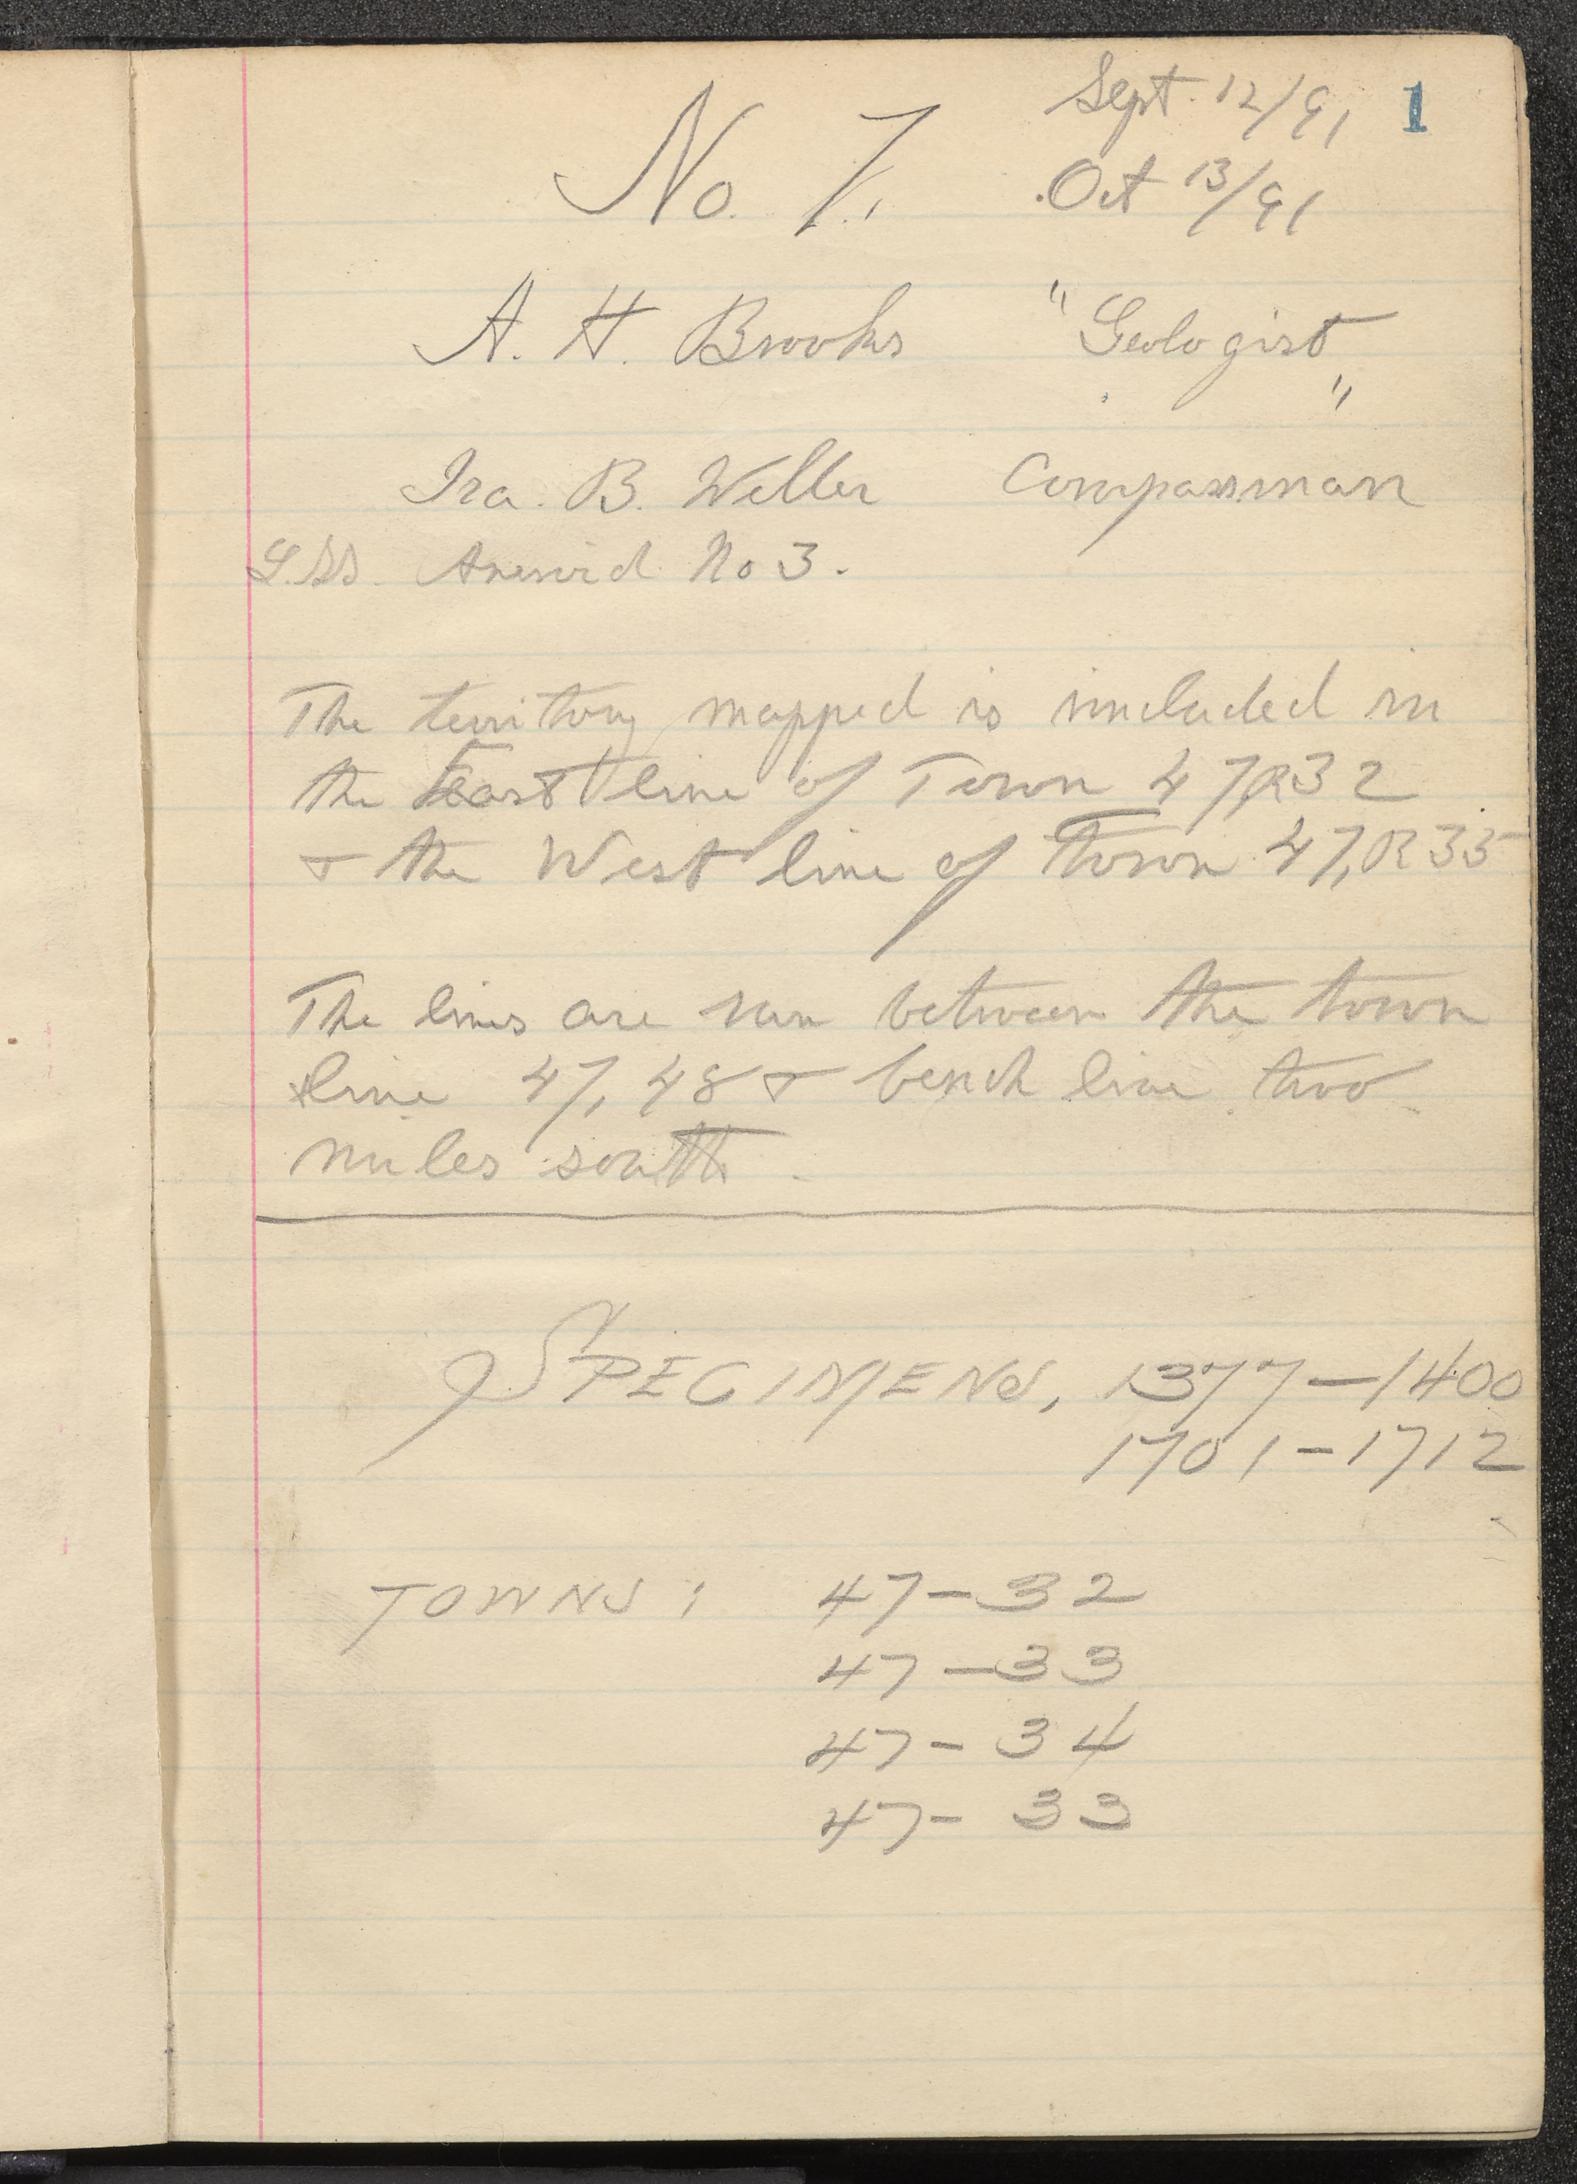 Sept. 12/91 1
No. 7. Oct 13/91
A. H. Brooks "Geologist"
Ira. B. Weller Compassman
Aneroid No 3.
The territory mapped is included in
the East line of Town 47, R32
& the West line of Town 47, R 35
The lines are run between the town
line 47, 48 & bench line two
miles south.
SPECIMENS, 1377-1400
1701-1712
TOWNS: 47-32
47-33
47-34
47-33